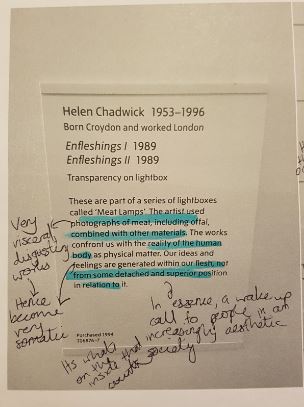 Helen Chadwick 1953–1996
Born Croydon and worked London
Enfleshings I 1989
Enfleshings II 1989
Transparency on lightbox
These are part of a series of lightboxes
called 'Meat Lamps'. The artist used
photographs of meat, including offal,
combined with other materials. The works
confront us with the reality of the human
body as physical matter. Our ideas and
feelings are generated within our flesh, not
from some detached and superior position
in relation to it.
Purchased 1994
Very
visceral
disgusting
works
Hence
become
very
somatic
In essence, a wake up
call to people in an
increasingly aesthetic
society
Its whats
on the
inside that
counts